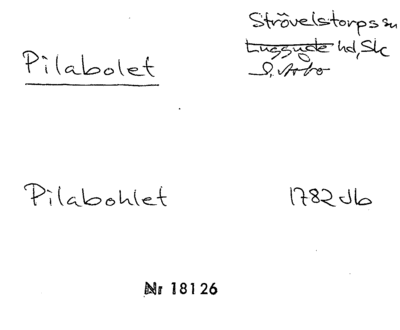 Strövelstorps sn
Pilabolet
Luggude hd, Sk
S. Åsbo
Pilabohlet 1782 Jb
Nr 18126